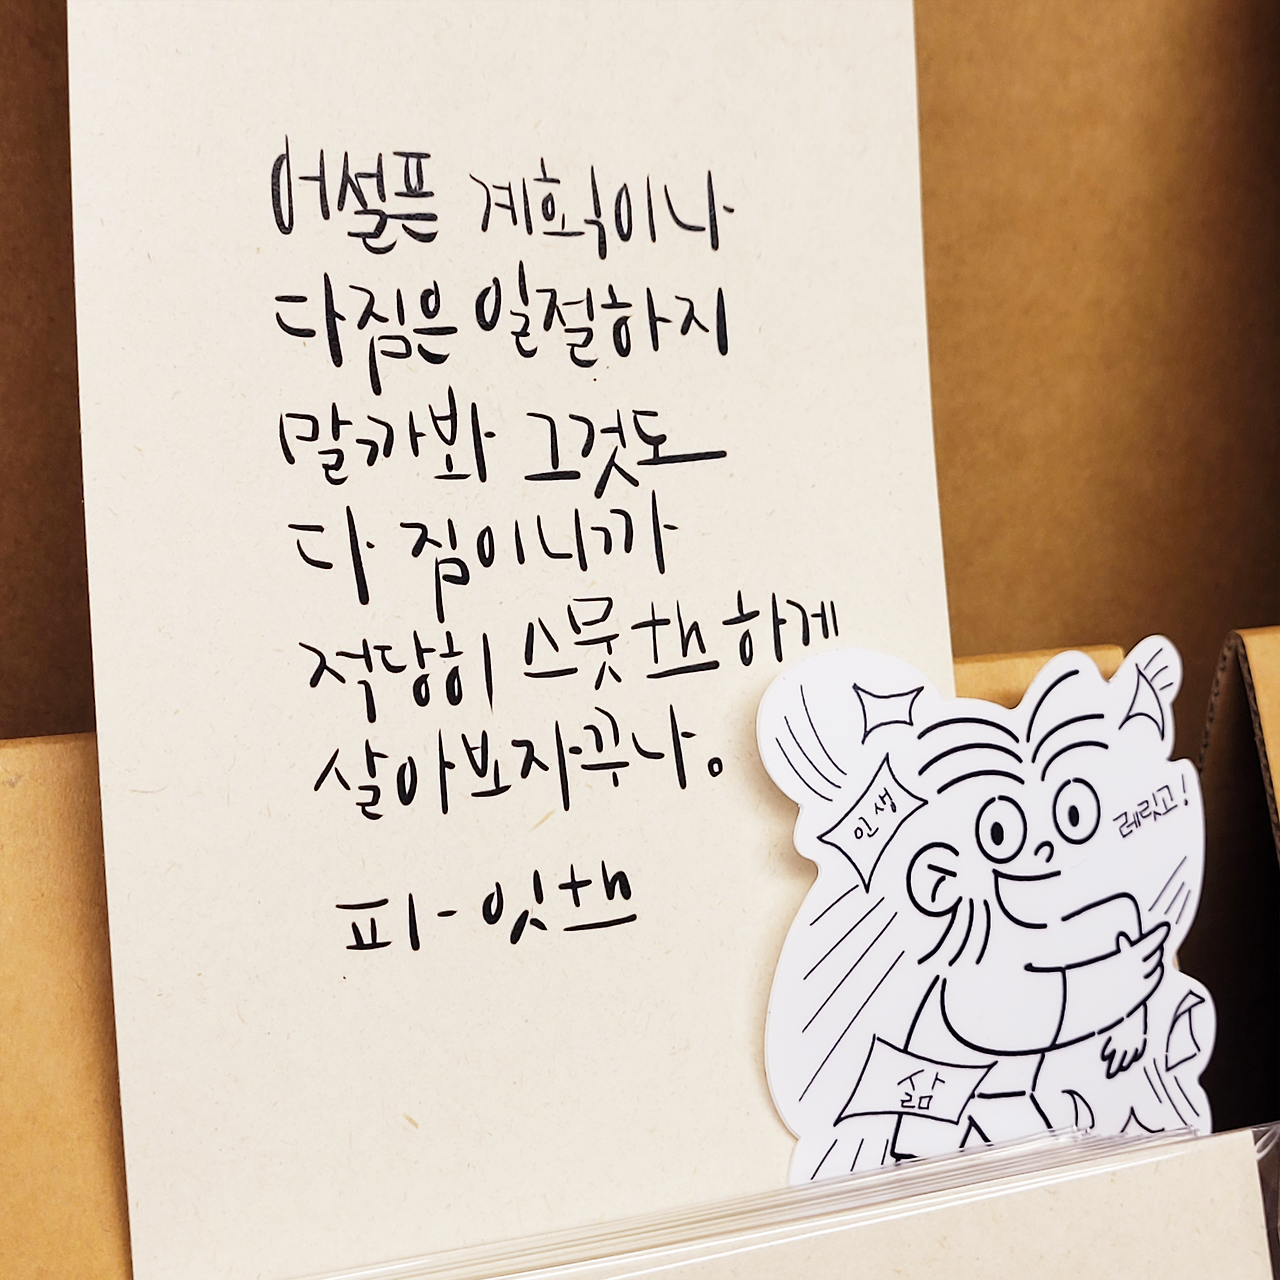 어설픈 계획이나
다짐은 일절하지
말까봐 그것도
다 짐이니까
적당히 스뭇th하게
살아보자꾸나。
피-잇th
인생
레릿고!
삶